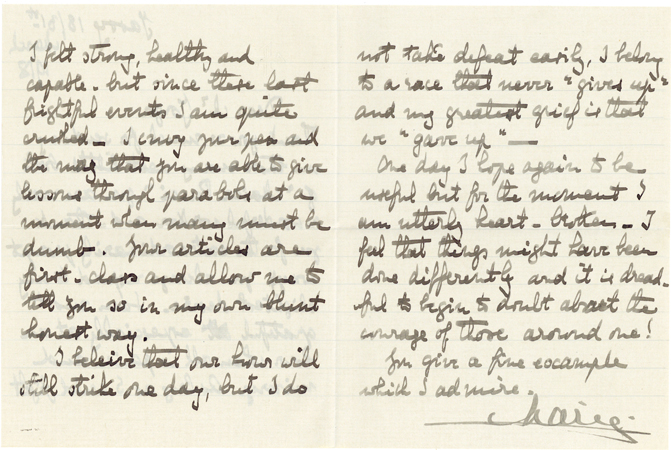 I felt strong, healthy and
capable - but since these last
frightful events I am quite
crushed - I envy your pen and
the way that you are able to give
lessons through parabols at a
moment when many must be
dumb. Your articles are
first-class and allow me to
tell you so in my own blunt
honest way.
I beleive that our hour will
still strike one day, but I do
not take defeat easily, I belong
to a race that never "gives up"
and my greatest grief is that
we "gave up" —
One day I hope again to be
useful but for the moment I
am utterly heart-broken - I
feel that things might have been
done differently and it is dread-
ful to begin to doubt about the
courage of those around one!
You give a fine example
which I admire.
Marie.